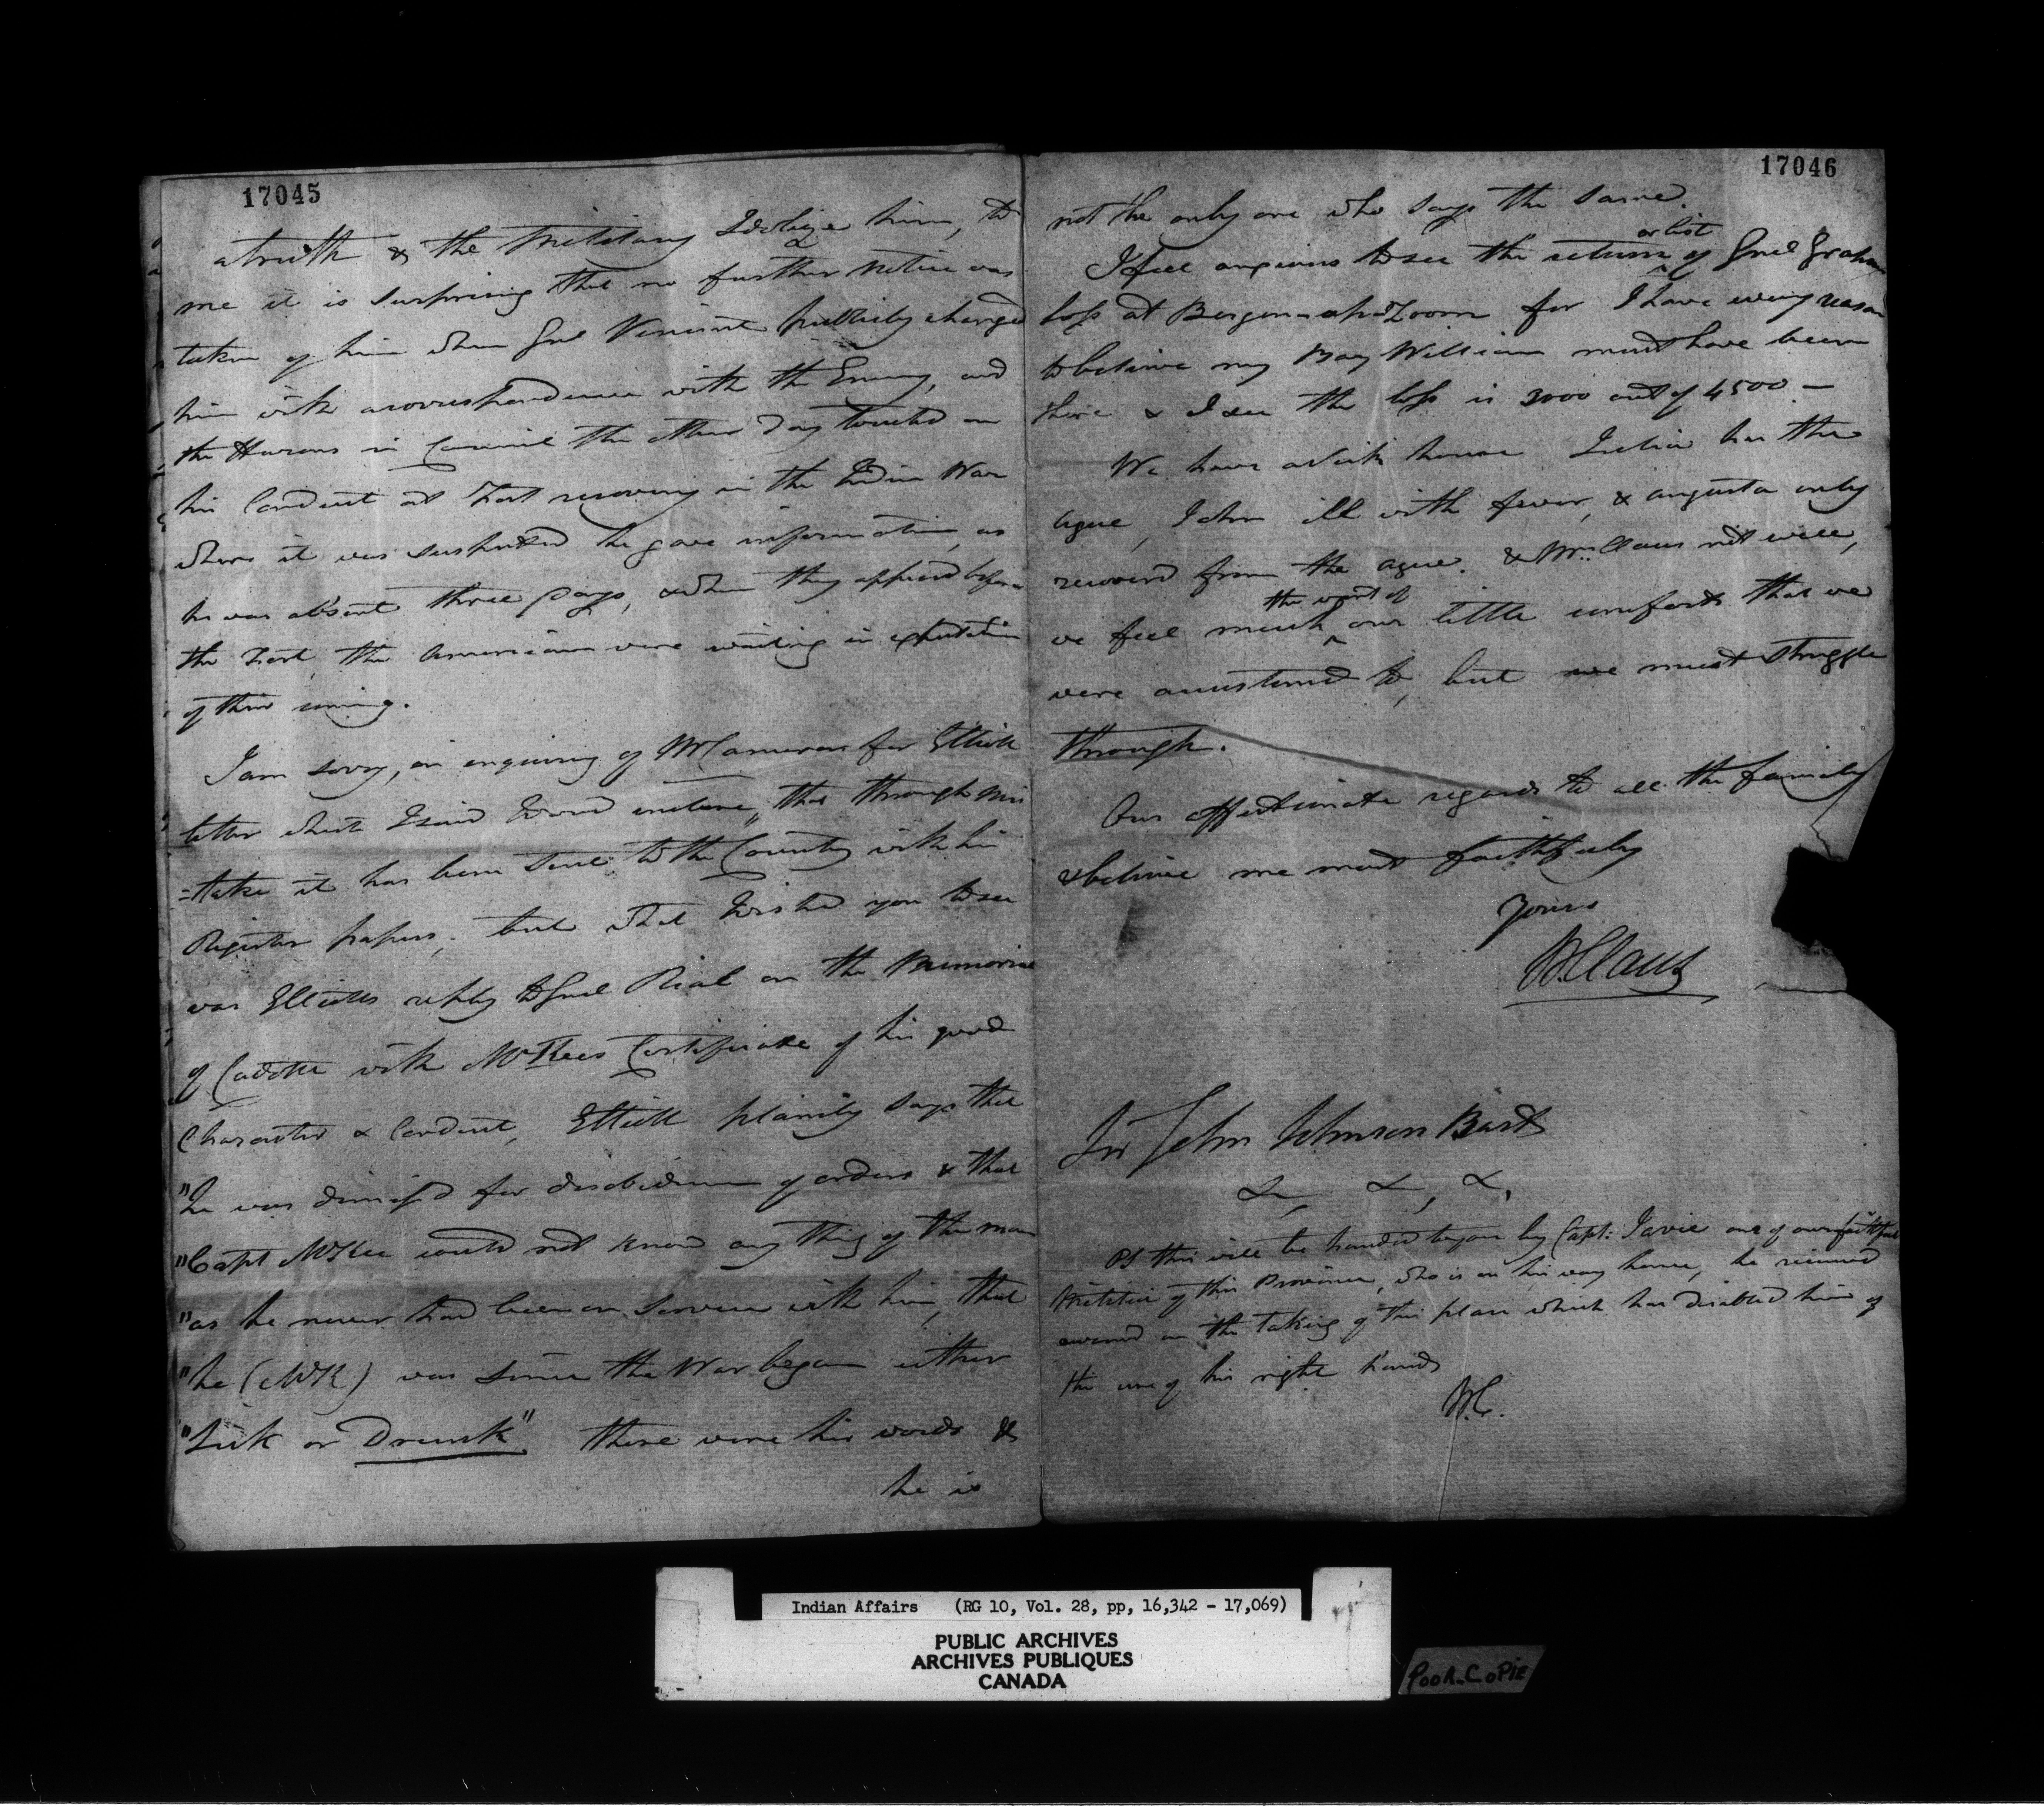 17045
a truth & the Military Idolize him, to
me it is surprising that no further notice was
taken of him when Gnl Vincent publicly charged
him with a correspondence with the Enemy, and
the Hurons in Council the other day touched on
his Conduct at Fort recovery in the Indian War
where it was suspected he gave information, as
he was absent three days, & when they appeared before
the Fort the Americans were waiting in expectation
of their coming.
I am sorry, on enquiring of Mr Cameron for Elliott
letter which I said I would enclose, that through mis
=take it has been sent to the Country with his
Register papers, but what I wished you to see
was Elliotts reply to Gnl Rial on the Memorial
of Cadotte with McKees Certificate of his good
Character & Conduct, Elliott plainly says that
"he was dismissed for disobedience of orders & that
"Capt McKee could not know any thing of the man
"as he never had been on Service with him, that
"he (McK) was since the War began either
"Sick or Drunk" these were his words &
he is
17046
not the only one who says the same.
I feel anxious to see the return or list of Gnl Grahams
loss at Bergen-op-Zoom for I have every reason
to believe my Boy William must have been
there & I see the loss is 3000 out of 4500 —
We have a sick house Julia has the
ague, John ill with fever, & augusta only
recoverd from the ague. & Mrs. Claus not well,
we feel much the want of our little comforts that we
were accustomed to, but we must struggle
through.
Our affectionate regards to all the family
& believe me most faithfully
Yours
W Claus
Sir John Johnson Bart
&, &, &,
PS this will be handed to you by Capt: Jarvie one of our faithful
Militia of this Province, who is on his way home, he received
a wound on the taking of this place which has disabled him of
the use of his right hand
W.C.
Indian Affairs (RG 10, Vol. 28, pp, 16,342 - 17,069)
PUBLIC ARCHIVES
ARCHIVES PUBLIQUES
CANADA
POOR COPIE